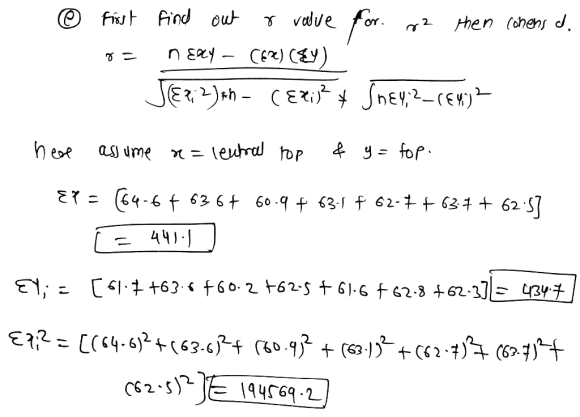 ⓔ First find out r value for. r² then cohens d.
r = n Σxy – (Σx) (Σy)
√(Σxᵢ²)*n – (Σxᵢ)² * √nΣyᵢ² – (Σyᵢ)²
here assume x = neutral top & y = top.
Σx = [64.6 + 63.6 + 60.9 + 63.1 + 62.7 + 63.7 + 62.5]
= 441.1
Σyᵢ = [61.7 + 63.6 + 60.2 + 62.5 + 61.6 + 62.8 + 62.3] = 434.7
Σxᵢ² = [(64.6)² + (63.6)² + (60.9)² + (63.1)² + (62.7)² + (63.7)² +
(62.5)²] = 194569.2